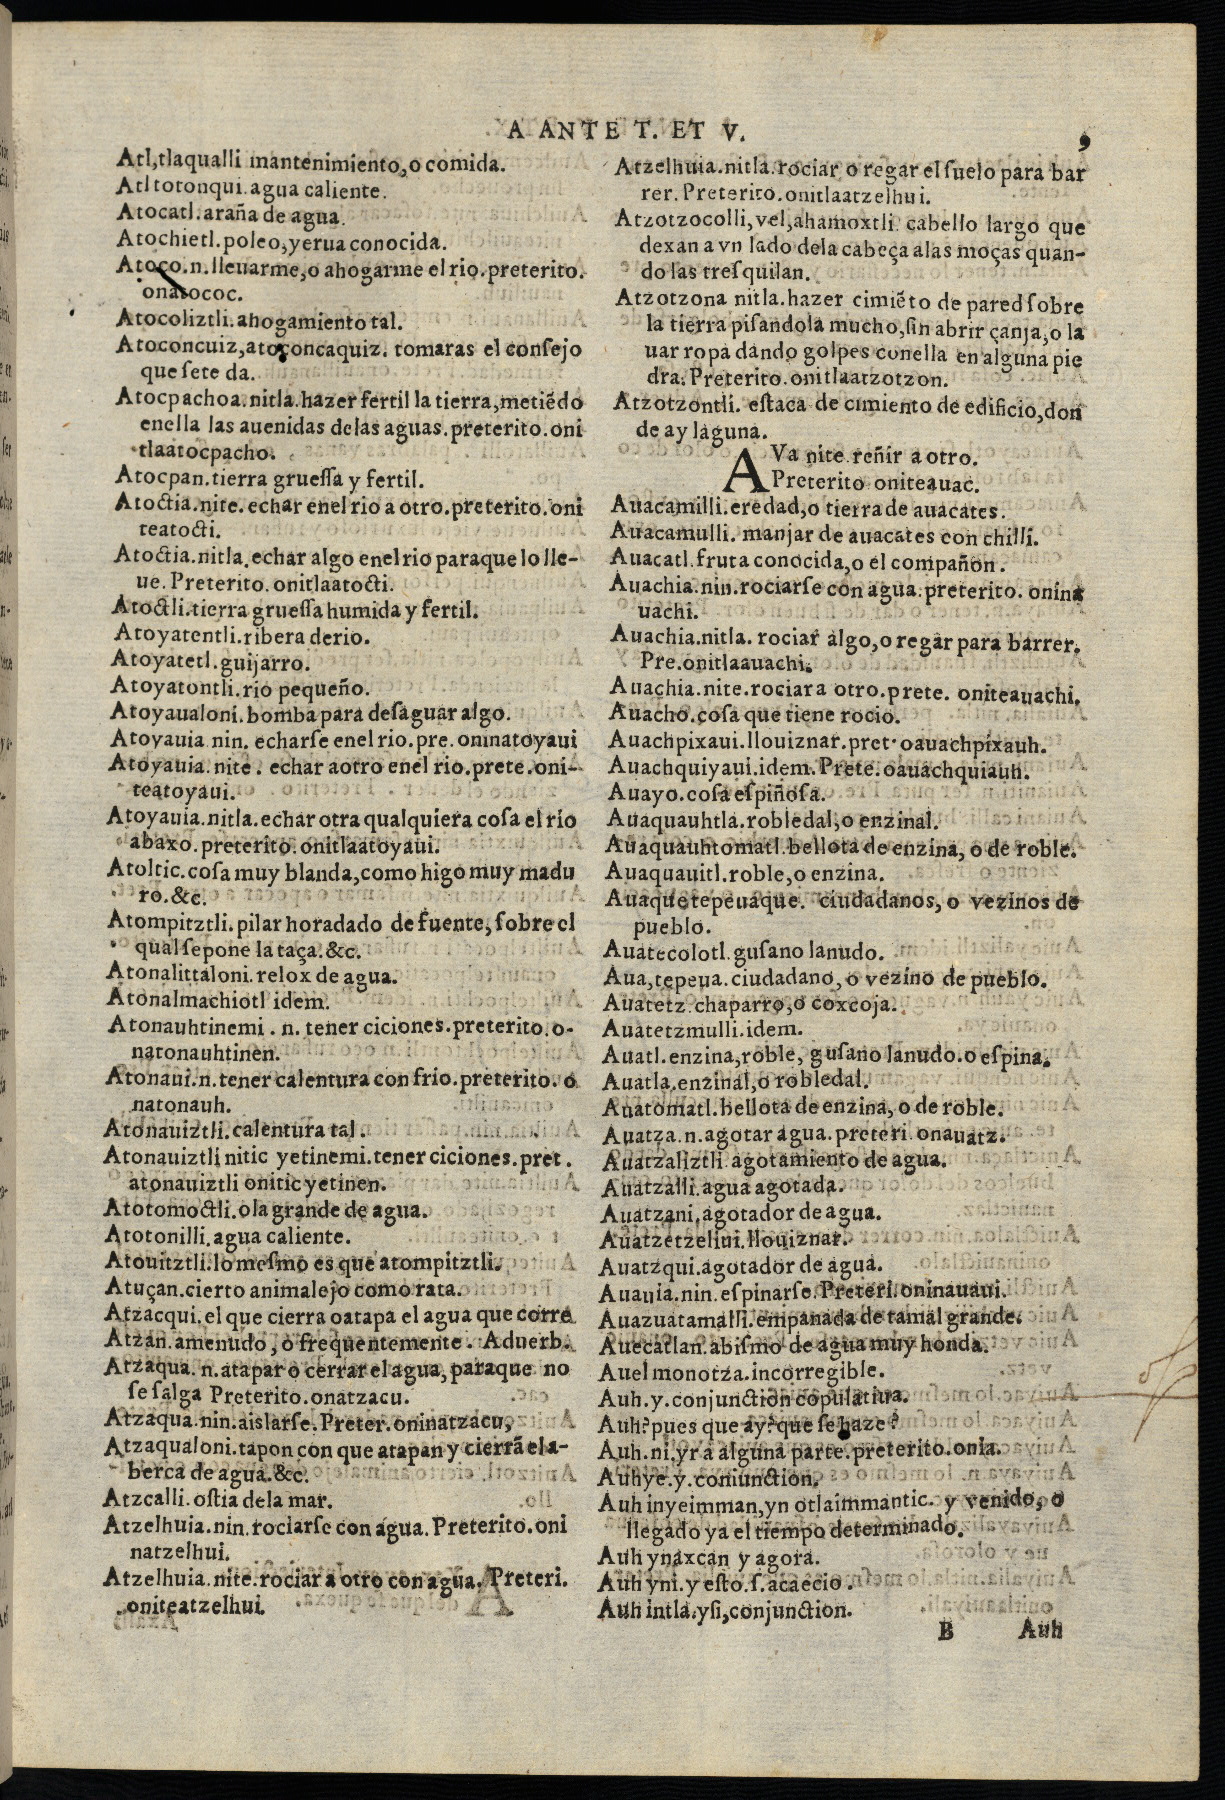 A ANTE T. ET V.
9
Atl,tlaqualli mantenimiento,o comida.
Atl totonqui.agua caliente.
Atocatl.araña de agua.
Atochietl.poleo,yerua conocida.
Atoco.n.lleuarme,o ahogarme el rio.preterito.
onatococ.
Atocoliztli.ahogamiento tal.
Atoconcuiz,atoçoncaquiz. tomaras el conſejo
que ſete da.
Atocpachoa.nitla.hazer fertil la tierra,metiẽdo
enella las auenidas delas aguas.preterito.oni
tlaatocpacho.
Atocpan.tierra grueſſa y fertil.
Atoctia.nite.echar enel rio a otro.preterito.oni
teatocti.
Atoctia.nitla.echar algo enel rio paraque lo lle-
ue. Preterito.onitlaatocti.
Atoctli.tierra grueſſa humida y fertil.
Atoyatentli.ribera de rio.
Atoyatetl.guijarro.
Atoyatontli.rio pequeño.
Atoyaualoni.bomba para deſaguar algo.
Atoyauia nin. echarſe enel rio.pre.oninatoyaui
Atoyauia.nite. echar aotro enel rio.prete.oni-
teatoyaui.
Atoyauia.nitla.echar otra qualquiera coſa el rio
abaxo.preterito.onitlaatoyaui.
Atoltic.coſa muy blanda,como higo muy madu
ro.&c.
Atompitztli.pilar horadado de fuente, ſobre el
qual ſe pone la taça.&c.
Atonalittaloni.relox de agua.
Atonalmachiotl idem.
Atonauhtinemi.n. tener ciciones.preterito.o-
natonauhtinen.
Atonaui.n.tener calentura con frio.preterito. o
natonauh.
Atonauiztli.calentura tal.
Atonauiztli nitic yetinemi.tener ciciones.pret.
atonauiztli onitic yetinen.
Atotomoctli.ola grande de agua.
Atotonilli.agua caliente.
Atouitztli.lo meſmo es que atompitztli.
Atuçan.cierto animalejo como rata.
Atzacqui.el que cierra oatapa el agua que corre
Atzan.amenudo, o frequentemente. Aduerb.
Atzaqua.n.atapar o cerrar el agua, paraque no
ſe ſalga Preterito.onatzacu.
Atzaqua.nin.aislarſe.Preter.oninatzacu,
Atzaqualoni.tapon con que atapan y cierrã el a-
berca de agua.&c.
Atzcalli.oſtia dela mar.
Atzelhuia.nin.rociarſe con agua.Preterito.oni
natzelhui.
Atzelhuia.nite.rociar a otro con agua. Preteri.
oniteatzelhui.
Atzelhuia.nitla.rociar o regar el ſuelo para bar
rer. Preterito.onitlaatzelhui.
Atzotzocolli,vel,ahamoxtli. cabello largo que
dexan a vn lado dela cabeça alas moças quan-
do las treſquilan.
Atzotzona nitla.hazer cimiẽto de pared ſobre
la tierra piſandola mucho,ſin abrir çanja,o la
uar ropa dando golpes conella en alguna pie
dra.Preterito.onitlaatzotzon.
Atzotzontli. eſtaca de cimiento de edificio,don
de ay laguna.
AVa nite.reñir a otro.
Preterito oniteauac.
Auacamilli.eredad,o tierra de auacates.
Auacamulli. manjar de auacates con chilli.
Auacatl.fruta conocida,o el compañon.
Auachia.nin.rociarſe con agua.preterito. onina
uachi.
Auachia.nitla. rociar algo,o regar para barrer.
Pre.onitlaauachi.
Auachia.nite.rociar a otro.prete. oniteauachi.
Auacho.coſa que tiene rocio.
Auachpixaui.llouiznar.pret.oauachpixauh.
Auachquiyaui.idem.Prete.oauachquiauh.
Auayo.coſa eſpinoſa.
Auaquauhtla.robledal,o enzinal.
Auaquauhtomatl.bellota de enzina, o de roble.
Auaquauitl.roble,o enzina.
Auaque tepeuaque. ciudadanos, o vezinos de
pueblo.
Auatecolotl.guſano lanudo.
Aua,tepeua.ciudadano, o vezino de pueblo.
Auatetz.chaparro,o coxcoja.
Auatetzmulli.idem.
Auatl.enzina,roble, guſano lanudo.o eſpina.
Auatla.enzinal,o robledal.
Auatomatl.bellota de enzina, o de roble.
Auatza.n.agotar agua.preteri.onauatz.
Auatzaliztli agotamiento de agua.
Auatzalli.agua agotada.
Auatzani.agotador de agua.
Auatzetzeliui.llouiznar.
Auatzqui.agotador de agua.
Auauia.nin.eſpinarſe.Preteri.oninauaui.
Auazuatamalli.empanada de tamal grande.
Auecatlan.abiſmo de agua muy honda.
Auel monotza.incorregible.
Auh.y.conjunction copulatiua.
Auh?pues que ay?que ſe haze?
Auh.ni.yr a alguna parte.preterito.onia.
Auhye.y.coniunction.
Auh inyeimman,yn otlaimmantic. y venido, o
llegado ya el tiempo determinado.
Auh ynaxcan y agora.
Auh yni.y eſto.ſ.acaecio.
Auh intla.yſi,conjunction.
B Auh